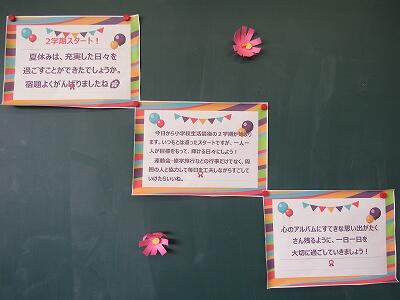 2学期スタート!
夏休みは、充実した日々を
過ごすことができたでしょうか。
宿題よくがんばりましたね
今日から小学校生活最後の2学期が始まり
ます。いつもとは違ったスタートですが、一人一
人が目標をもって、輝ける日々にしよう!
運動会・修学旅行などの行事だけでなく、周
囲の人と協力して毎日を工夫しながらすごして
いけたらいいね。
心のアルバムにすてきな思い出がたく
さん残るように、一日一日を
大切に過ごしていきましょう!